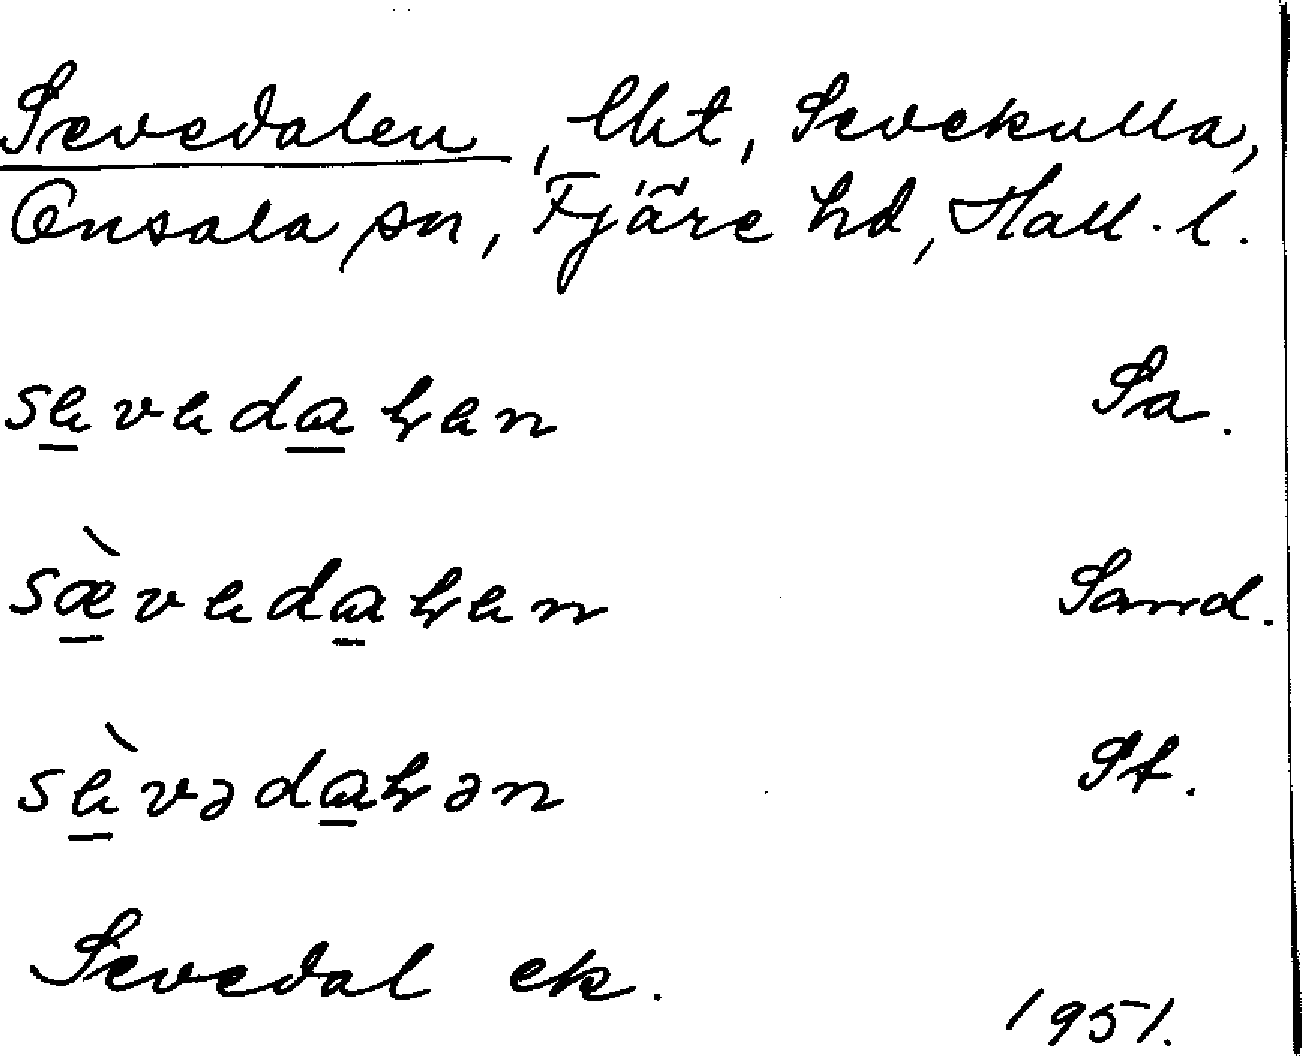 Sevedalen, lht, Sevekulla,
Onsala sn, Fjäre hd, Hall. l.
sevedaɫen Sa.
sæ̀vedaɫen Sand.
sèvədaɫən St.
Sevedal ek.
1951.